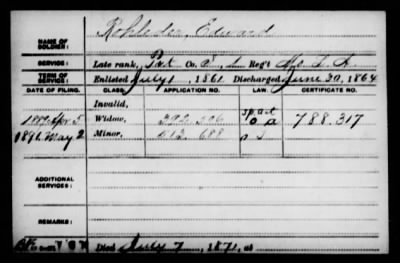 NAME OF SOLDIER: Rohleder, Edward
SERVICE: Late rank, Pvt Co. Reg't Mo. Inf.
TERM OF SERVICE: Enlisted July 1, 1861 Discharged June 30, 1864
DATE OF FILING. CLASS. APPLICATION NO. LAW. CERTIFICATE NO.
Invalid,
1889 Apr 5 Widow, 392.506 788.317
1891. May 2 Minor, 512.688
ADDITIONAL SERVICES:
REMARKS:
Died July 7, 1871, at